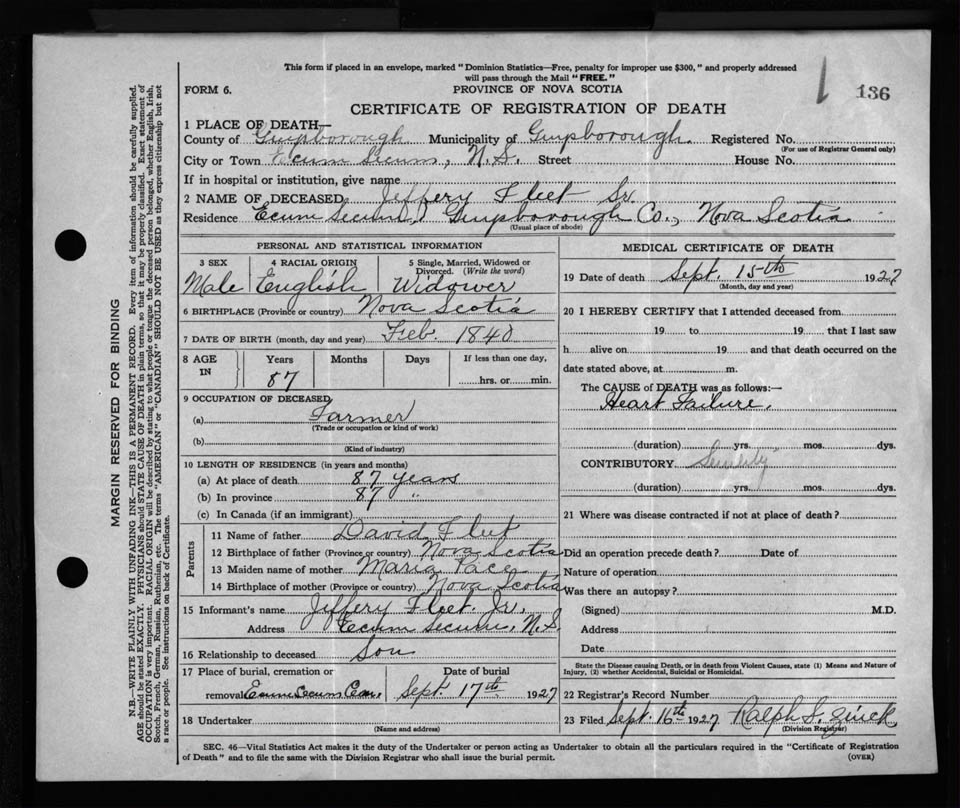 This form if placed in an envelope, marked "Dominion Statistics—Free, penalty for improper use $300," and properly addressed
will pass through the Mail "FREE."
136
FORM 6.
PROVINCE OF NOVA SCOTIA
CERTIFICATE OF REGISTRATION OF DEATH
1 PLACE OF DEATH—
County of Guysborough Municipality of Guysborough. Registered No.
(For use of Registrar General only)
City or Town Ecum Secum, N.S. Street House No.
If in hospital or institution, give name
2 NAME OF DECEASED Jeffery Fleet Sr.
Residence Ecum Secum, Guysborough Co., Nova Scotia
(Usual place of abode)
PERSONAL AND STATISTICAL INFORMATION
3 SEX 4 RACIAL ORIGIN 5 Single, Married, Widowed or
Divorced. (Write the word)
Male English Widower
6 BIRTHPLACE (Province or country) Nova Scotia
7 DATE OF BIRTH (month, day and year) Feb. 1840
8 AGE IN Years Months Days If less than one day,
87 hrs. or min.
9 OCCUPATION OF DECEASED
(a) Farmer
(Trade or occupation or kind of work)
(b)
(Kind of industry)
10 LENGTH OF RESIDENCE (in years and months)
(a) At place of death 87 years
(b) In province 87 "
(c) In Canada (if an immigrant)
Parents
11 Name of father David Fleet
12 Birthplace of father (Province or country) Nova Scotia
13 Maiden name of mother Maria Pace
14 Birthplace of mother (Province or country) Nova Scotia
15 Informant's name Jeffery Fleet Jr.
Address Ecum Secum, N.S
16 Relationship to deceased Son
17 Place of burial, cremation or Date of burial
removal Ecum Secum Cem. Sept. 17th 1927
18 Undertaker
(Name and address)
MEDICAL CERTIFICATE OF DEATH
19 Date of death Sept. 15th 1927
(Month, day and year)
20 I HEREBY CERTIFY that I attended deceased from
19 to 19 that I last saw
h alive on 19 and that death occurred on the
date stated above, at m.
The CAUSE of DEATH was as follows:—
Heart Failure,
(duration) yrs. mos. dys.
CONTRIBUTORY Senility
(duration) yrs. mos. dys.
21 Where was disease contracted if not at place of death?
Did an operation precede death? Date of
Nature of operation
Was there an autopsy?
(Signed) M.D.
Address
Date
State the Disease causing Death, or in death from Violent Causes, state (1) Means and Nature of
Injury, (2) whether Accidental, Suicidal or Homicidal.
22 Registrar's Record Number
23 Filed Sept. 16th 1927 Ralph S. Zinck
(Division Registrar)
SEC. 46—Vital Statistics Act makes it the duty of the Undertaker or person acting as Undertaker to obtain all the particulars required in the "Certificate of Registration
of Death" and to file the same with the Division Registrar who shall issue the burial permit.
(OVER)
MARGIN RESERVED FOR BINDING
N.B.—WRITE PLAINLY WITH UNFADING INK—THIS IS A PERMANENT RECORD. Every item of information should be carefully supplied.
AGE should be stated EXACTLY. PHYSICIANS should STATE CAUSE OF DEATH in plain terms, so that it may be properly classified. Exact statement of
OCCUPATION is very important. RACIAL ORIGIN will be described by stating to what people or tongue the deceased person belonged, whether English, Irish,
Scotch, French, German, Russian, Ruthenian, etc. The terms "AMERICAN" or "CANADIAN" SHOULD NOT BE USED as they express citizenship but not
a race or people. See instructions on back of Certificate.